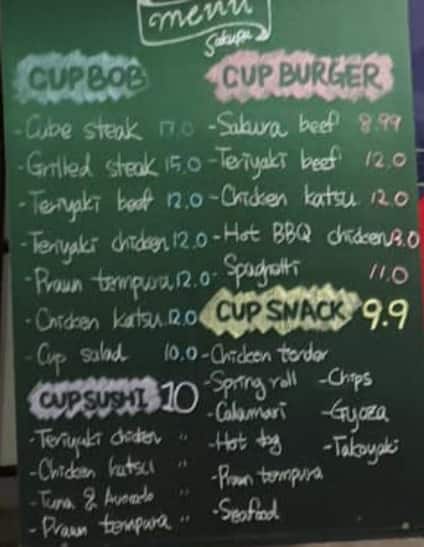 menu
Sakura
CUP BOB
-Cube steak 17.0
-Grilled steak 15.0
-Teriyaki beef 12.0
-Teriyaki chicken 12.0
-Prawn tempura 12.0
-Chicken katsu 12.0
-Cup salad 10.0
CUP SUSHI 10
-Teriyaki chicken "
-Chicken katsu "
-Tuna & Avocado "
-Prawn tempura "
CUP BURGER
-Sakura beef 8.99
-Teriyaki beef 12.0
-Chicken katsu 12.0
-Hot BBQ chicken 13.0
-Spaghetti 11.0
CUP SNACK 9.9
-Chicken tender
-Spring roll -Chips
-Calamari -Gyoza
-Hot dog -Takoyaki
-Prawn tempura
-Seafood